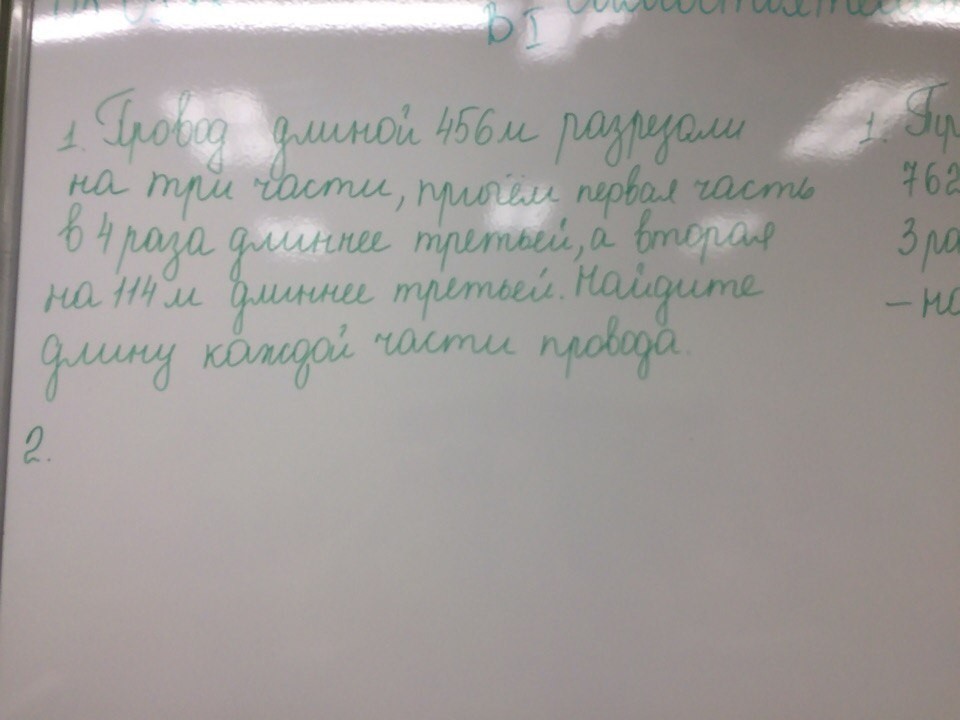 В I
1. Провод длиной 456м разрезали
на три части, причём первая часть
в 4 раза длиннее третьей, а вторая
на 114 м длиннее третьей. Найдите
длину каждой части провода.
2.
1. Пр
762
3 ра
– на